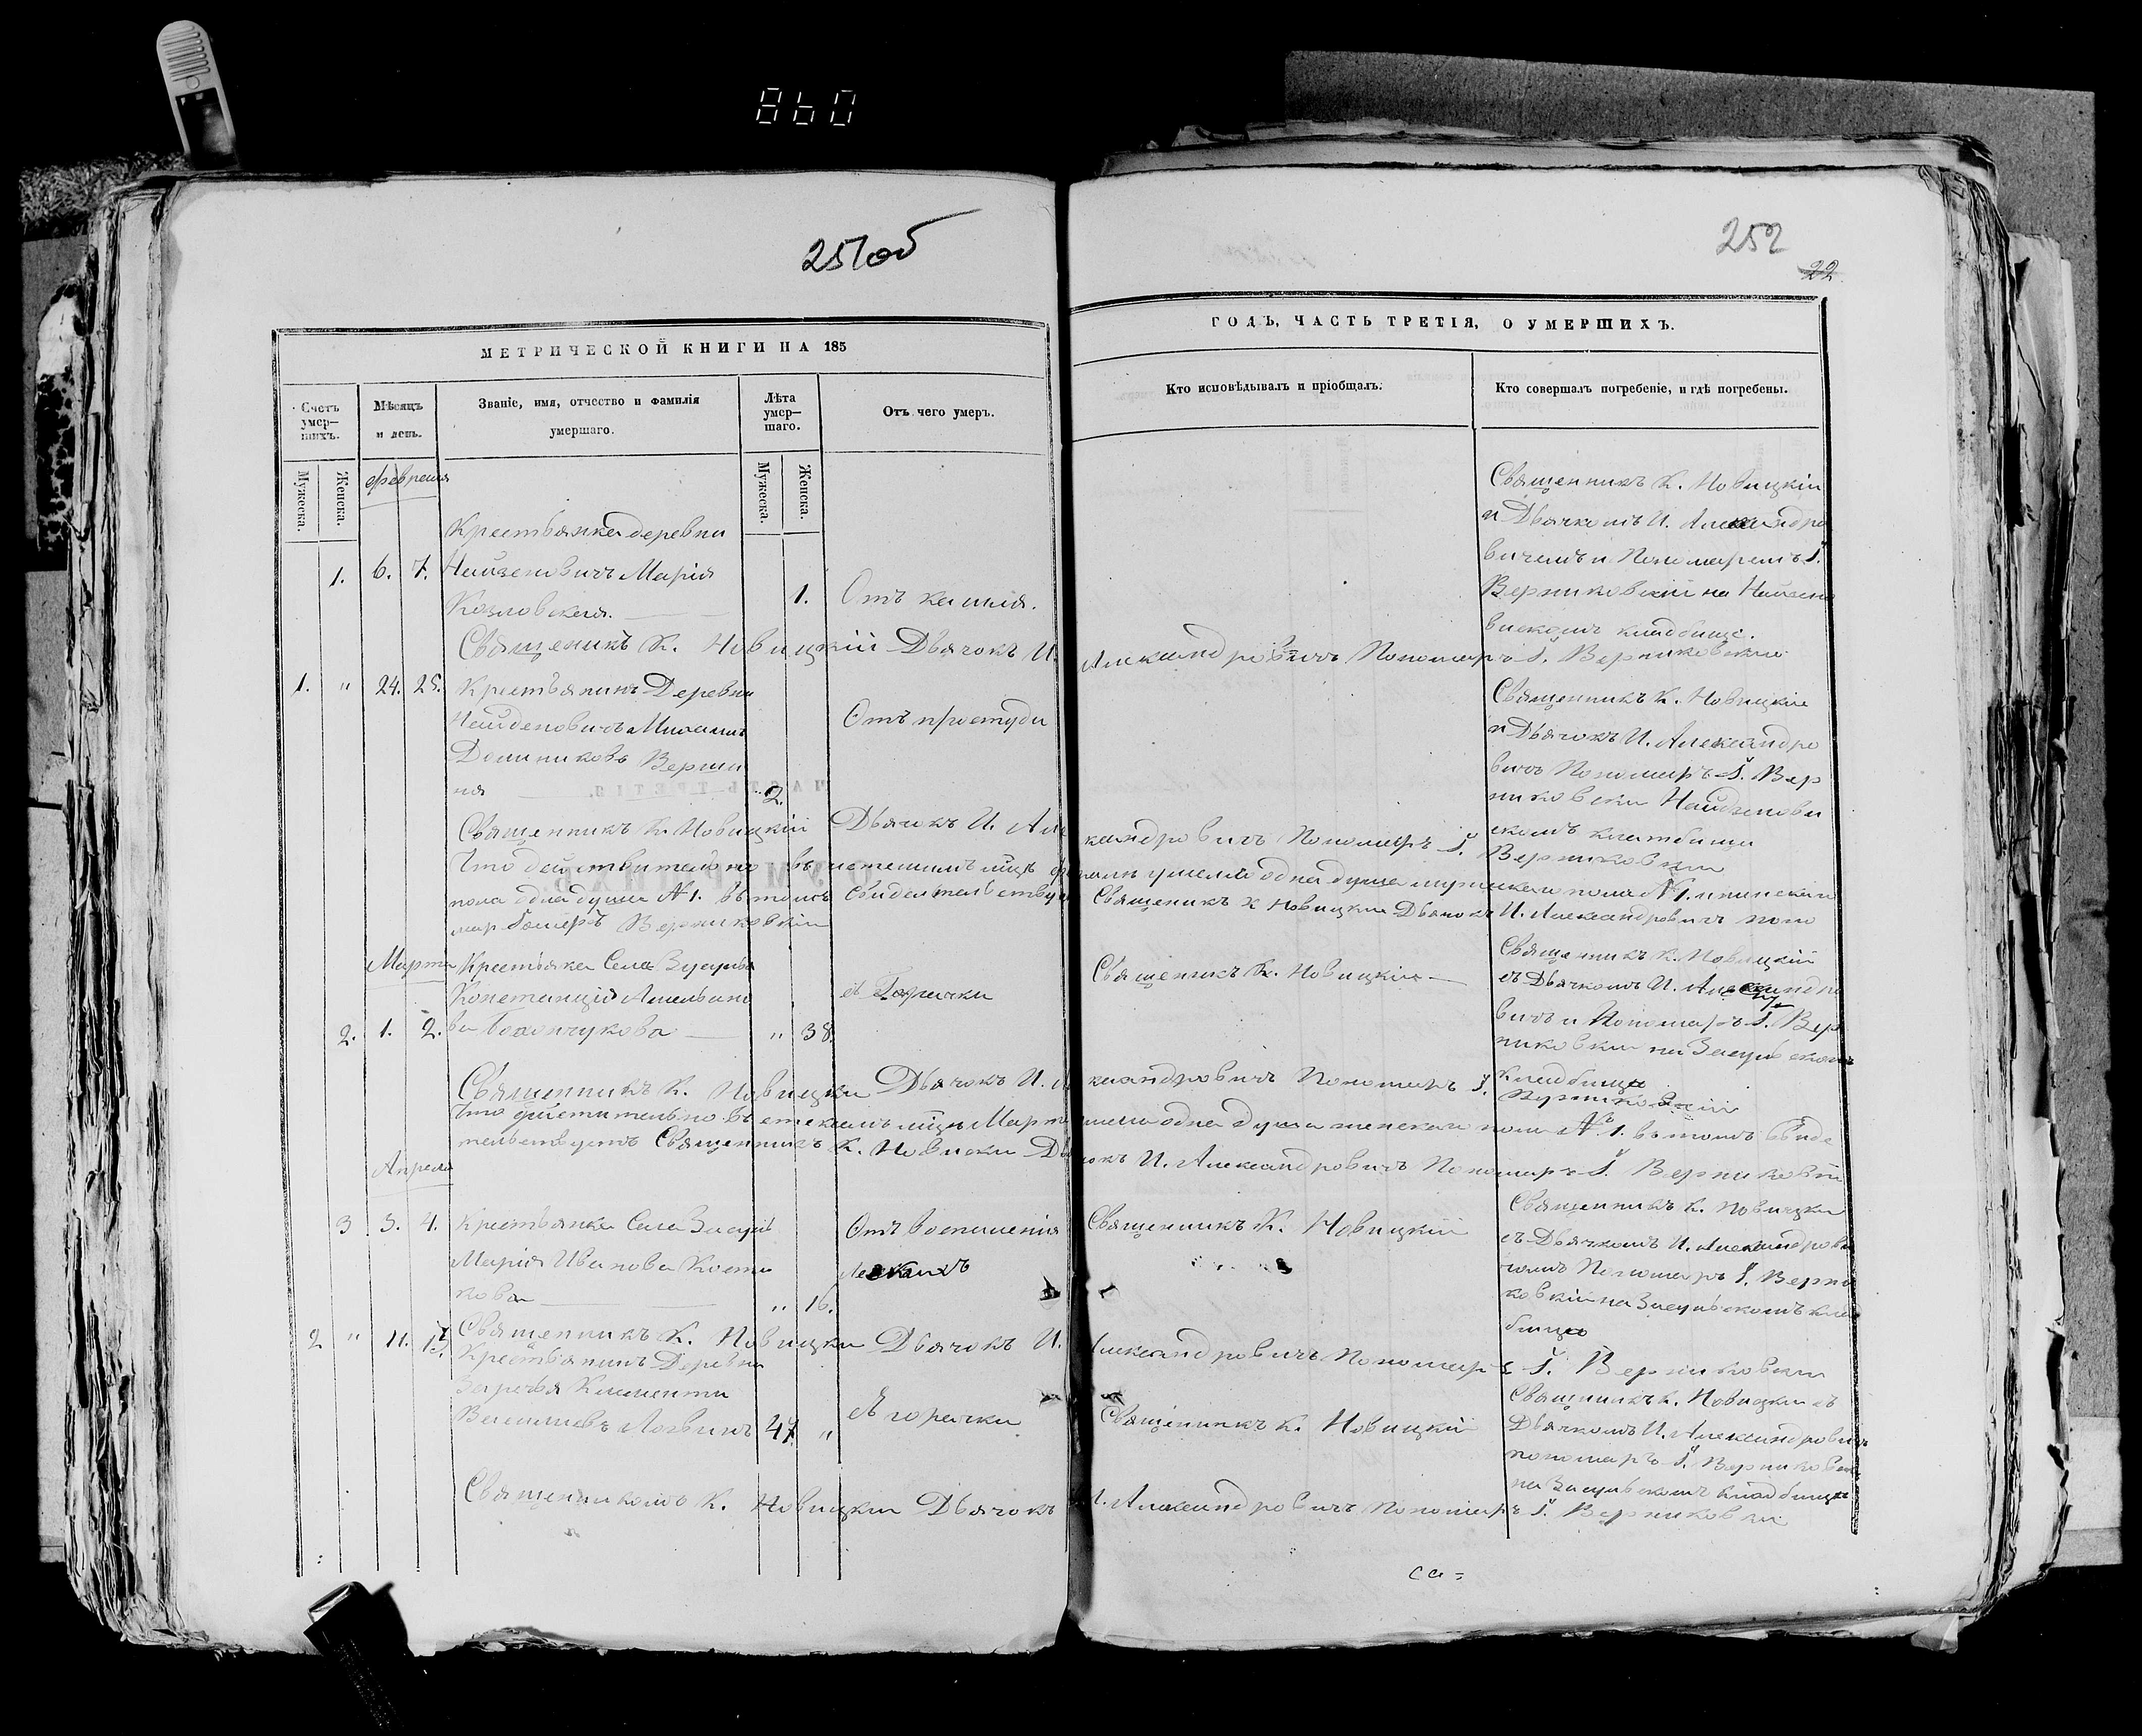 860
251об
252
22
МЕТРИЧЕСКОЙ КНИГИ НА 185
ГОДЪ, ЧАСТЬ ТРЕТІЯ, О УМЕРШИХЪ.
Счетъ умер-шихъ.
Мѣсяцъ и день.
Званіе, имя, отчество и фамилія умершаго.
Лѣта умер-шаго.
Отъ чего умеръ.
Кто исповѣдывалъ и пріобщалъ.
Кто совершалъ погребеніе, и гдѣ погребены.
Мужеска.
Женска.
Мужеска.
Женска.
февраля
Крестьянка деревни
1. 6. 7. Найзеновичъ Марія
Козловская.
1. Отъ кашля.
Священникъ К. Новицкій
и Дьячкомъ И. Александро
вичемъ и Пономаремъ І.
Верниковскій на Найзено
вскомъ кладбище.
Священикъ К. Новицкій Дьячокъ И. Александровичъ Пономарь І. Верниковскій
1. " 24. 25. Крестьянинъ Деревни
Найденовичъ Михаилъ
Доминиковъ
2.
Отъ простуди
Священникъ К. Новицкіи
и Дьячокъ И. Александро
вичъ Пономаръ І. Вер
никовски Найдзенови
скомъ кладбищи
Священникъ К. Новицкій Дьячокъ И. Александровичъ Пономаръ І. Верниковски
Что действительно въ истекшимъ мцѣ умерло одна душа мужеска пола №1. и женскаго
пола одна душа №1. въ томъ свидетельствуе Священикъ К Новицкіи Дьячокъ И. Александровичъ поно
марь Верниковскій
Марта
Крестьяка Села Засулья
Констанція
2. 1. 2.
" 38.
съ Горячки
Священикъ К. Новицкій
Священникъ К. Новицкій
съ Дьячкомъ И. Александро
вичъ и Пономаръ І. Вер
никовски на Засульскомъ
кладбище
Священникъ К. Новицки Дьячокъ И. Александровичъ Пономаръ І. Верниковскій
Что действительно въ текшемъ мцѣ Марте умела одна душа женскаго пола №1. въ томъ свиде
тельствуетъ Священникъ К. Новицки Дьячокъ И. Александровичъ Пономаръ І. Верниковскій
Апреля
3 3. 4. Крестьянка Села Засулье
Марія Иванова Костю
кова
" 16.
Отъ воспаленія
легкихъ
Священникъ К. Новицкій
Священникъ К. Новицки
съ Дьячкомъ И. Александрови
чемъ Пономаръ І. Верни
ковскій на Засульскомъ клад
бище
Священникъ К. Новицки Дьячокъ И. Александровичъ Пономаръ І. Верниковски
2 " 11. 13. Крестьянинъ Деревни
Заречья Клименти
Василиевъ
47. "
Священикъ К. Новицкій
Священникъ К. Новицки съ
Дьячкомъ И. Александровичъ
пономаръ І. Верниковски
на Засульскомъ кладбище
Священникомъ К. Новицки Дьячокъ И. Александровичъ Пономаръ І. Верниковски